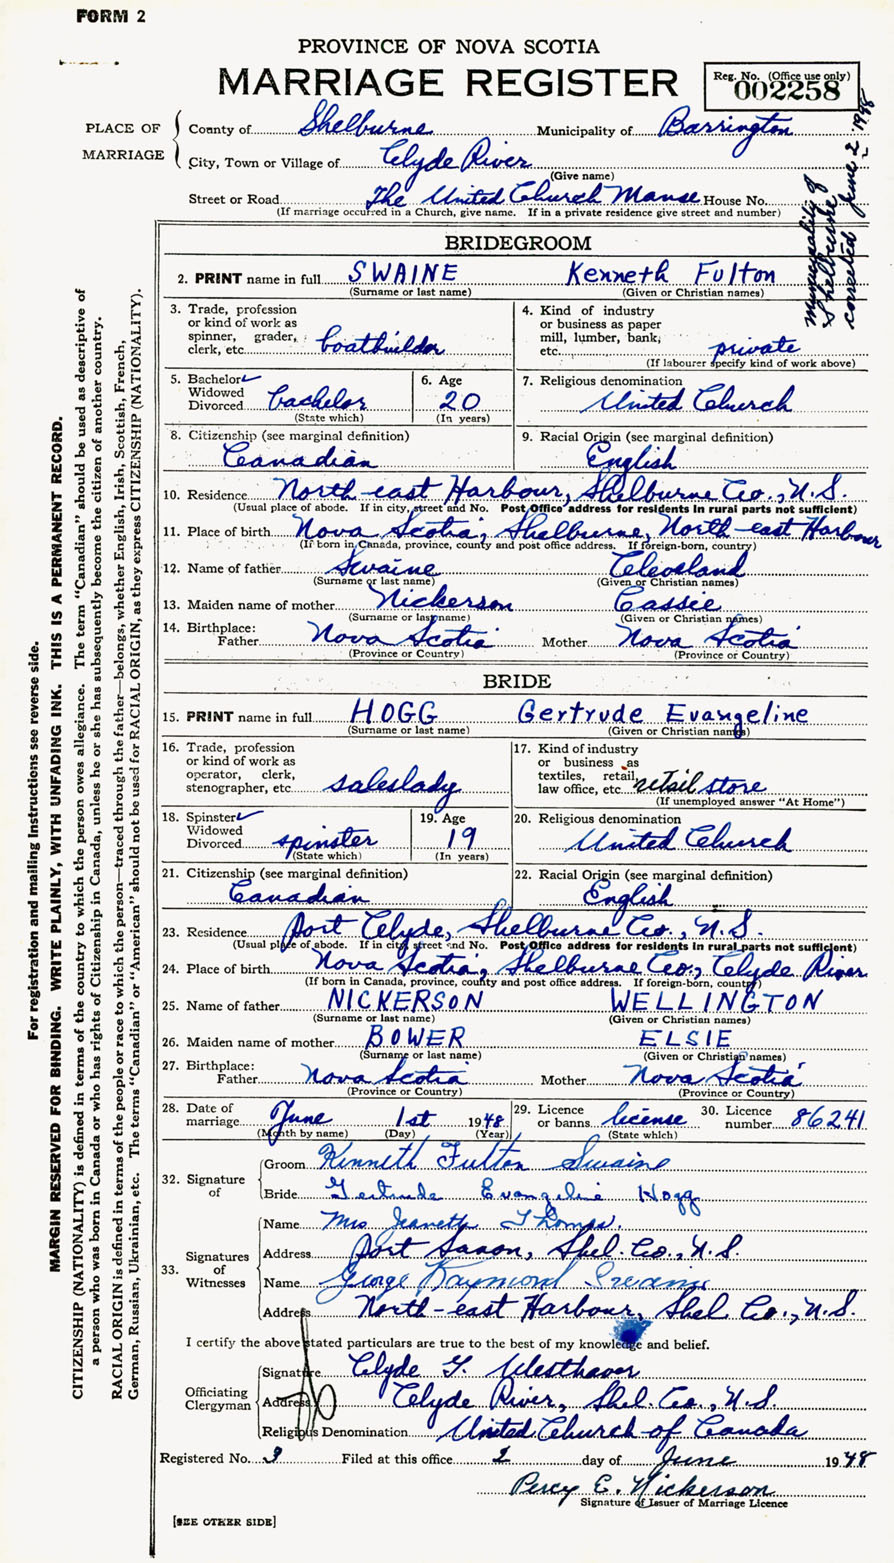 FORM 2
PROVINCE OF NOVA SCOTIA
MARRIAGE REGISTER
Reg. No. (Office use only)
002258
PLACE OF MARRIAGE
County of Shelburne Municipality of Barrington
City, Town or Village of Clyde River
(Give name)
Street or Road The United Church Manse House No.
(If marriage occurred in a Church, give name. If in a private residence give street and number)
Municipality of
Shelburne
corrected June 2, 1948
BRIDEGROOM
2. PRINT name in full SWAINE Kenneth Fulton
(Surname or last name) (Given or Christian names)
3. Trade, profession
or kind of work as
spinner, grader,
clerk, etc. boatbuilder
4. Kind of industry
or business as paper
mill, lumber, bank,
etc. private
(If labourer specify kind of work above)
5. Bachelor ✓
Widowed
Divorced bachelor
(State which)
6. Age
20
(In years)
7. Religious denomination
United Church
8. Citizenship (see marginal definition)
Canadian
9. Racial Origin (see marginal definition)
English
10. Residence North east Harbour, Shelburne Co., N.S.
(Usual place of abode. If in city, street and No. Post Office address for residents in rural parts not sufficient)
11. Place of birth Nova Scotia, Shelburne, North-east Harbour
(If born in Canada, province, county and post office address. If foreign-born, country)
12. Name of father Swaine Cleveland
(Surname or last name) (Given or Christian names)
13. Maiden name of mother Nickerson Cassie
(Surname or last name) (Given or Christian names)
14. Birthplace:
Father Nova Scotia Mother Nova Scotia
(Province or Country) (Province or Country)
BRIDE
15. PRINT name in full HOGG Gertrude Evangeline
(Surname or last name) (Given or Christian names)
16. Trade, profession
or kind of work as
operator, clerk,
stenographer, etc. saleslady
17. Kind of industry
or business as
textiles, retail,
law office, etc. retail store
(If unemployed answer "At Home")
18. Spinster ✓
Widowed
Divorced spinster
(State which)
19. Age
19
(In years)
20. Religious denomination
United Church
21. Citizenship (see marginal definition)
Canadian
22. Racial Origin (see marginal definition)
English
23. Residence Port Clyde, Shelburne Co., N.S.
(Usual place of abode. If in city street and No. Post Office address for residents in rural parts not sufficient)
24. Place of birth Nova Scotia, Shelburne Co., Clyde River
(If born in Canada, province, county and post office address. If foreign-born, country)
25. Name of father NICKERSON WELLINGTON
(Surname or last name) (Given or Christian names)
26. Maiden name of mother BOWER ELSIE
(Surname or last name) (Given or Christian names)
27. Birthplace:
Father Nova Scotia Mother Nova Scotia
(Province or Country) (Province or Country)
28. Date of
marriage June 1st 1948
(Month by name) (Day) (Year)
29. Licence
or banns license
(State which)
30. Licence
number 86241
32. Signature of
Groom Kenneth Fulton Swaine
Bride Gertrude Evangeline Hogg
33. Signatures of Witnesses
Name Mrs Jeaneth Thomas.
Address Port Saxon, Shel. Co., N.S.
Name George Raymond
Address North-east Harbour, Shel Co., N.S.
I certify the above stated particulars are true to the best of my knowledge and belief.
Officiating Clergyman
Signature Clyde Westhaver
Address Clyde River, Shel. Co., N.S.
Religious Denomination United Church of Canada
Registered No. 9 Filed at this office 2 day of June 1948
Percy E. Nickerson
Signature of Issuer of Marriage Licence
[SEE OTHER SIDE]
For registration and mailing instructions see reverse side.
MARGIN RESERVED FOR BINDING. WRITE PLAINLY, WITH UNFADING INK. THIS IS A PERMANENT RECORD.
CITIZENSHIP (NATIONALITY) is defined in terms of the country to which the person owes allegiance. The term "Canadian" should be used as descriptive of
a person who was born in Canada or who has rights of Citizenship in Canada, unless he or she has subsequently become the citizen of another country.
RACIAL ORIGIN is defined in terms of the people or race to which the person—traced through the father—belongs, whether English, Irish, Scottish, French,
German, Russian, Ukrainian, etc. The terms "Canadian" or "American" should not be used for RACIAL ORIGIN, as they express CITIZENSHIP (NATIONALITY).